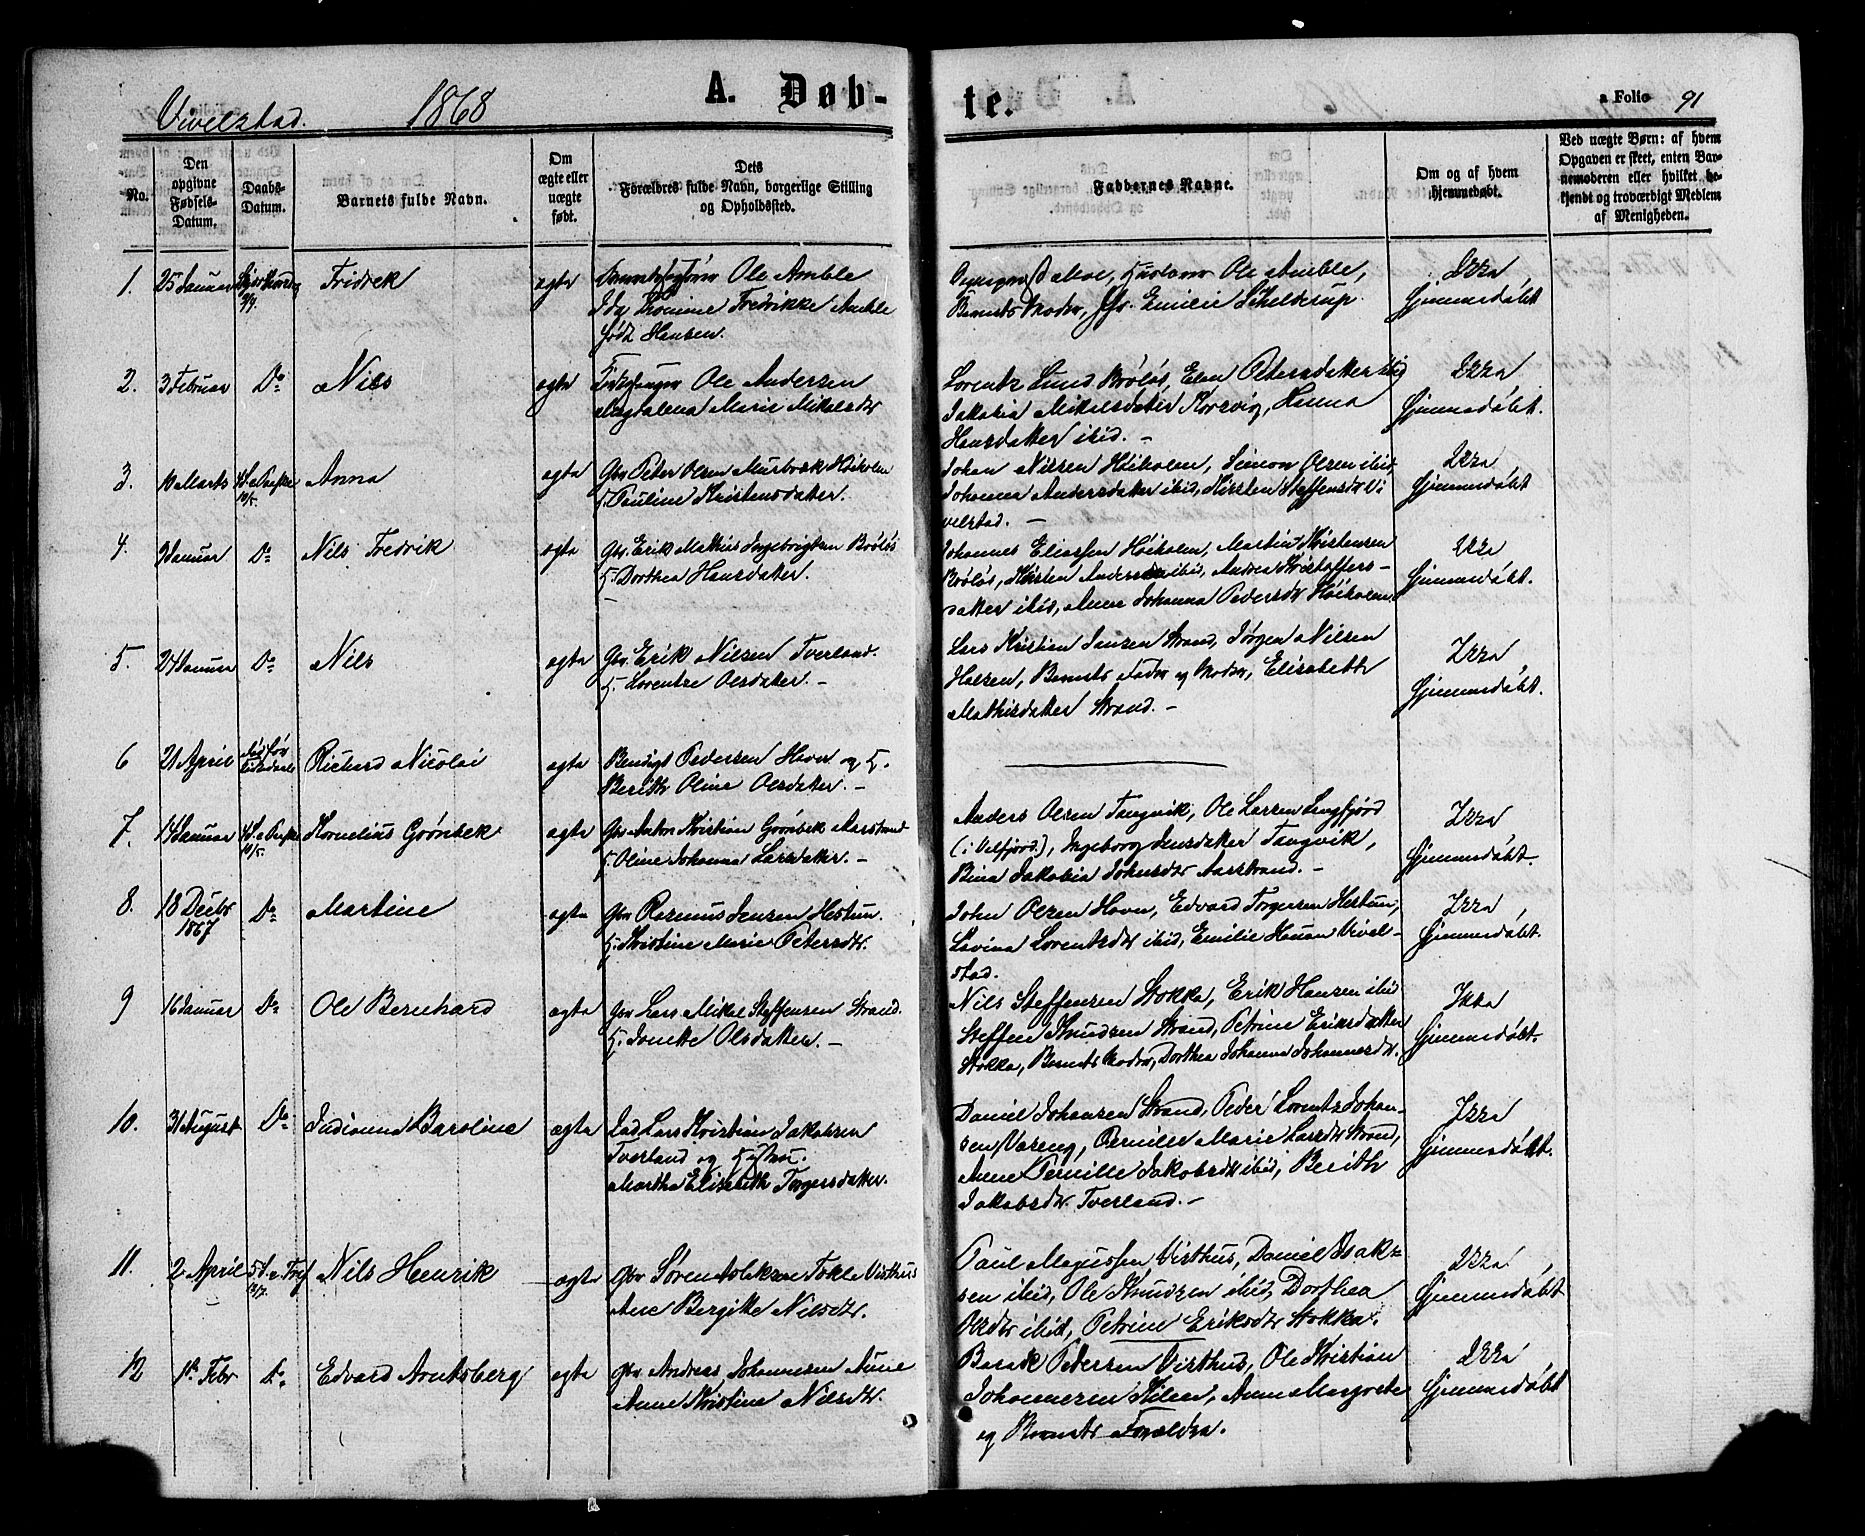 Vivelstad. 1868 A. Døb-
te. a Folio 91
No.
Den opgivne Fødsels-Datum.
Daabs-Datum.
Barnets fulde Navn.
Om ægte eller uægte født.
Dets Forældres fulde Navn, borgerlige Stilling og Opholdssted.
Faddernes Navne.
Om og af hvem hjemmedøbt.
Ved uægte Børn: af hvem Opgaven er skeet, enten Barnemoderen eller hvilket bekjendt og troværdigt Medlem af Menigheden.
1. 25 Januar Fridrek ægte Ole Amble
Fredrikke Amble
født Hansen.
Ole Amble,
Barnets Moder, Jfr. Emilie Schelderup.
Ikke
hjemmedøbt
2. 3 Februar Do Nils ægte Ole Andersen
Magdalena Marie Mikalsdtr
Lorentz Lund Brøløs, Elen Petersdatter ibid
Jakobia Mikalsdatter Korsvig, Hanna
Hansdatter ibid. –
Ikke
hjemmedøbt.
3. 10 Marts 4 S. e Paaske 10/5. Anna ægte Gbr Peter Olsen Murbræk Høiholm
H. Pauline Kristensdatter.
Johan Nilsen Høiholm, Simon Olsen ibid,
Johanna Andersdatter ibid, Kirsten Steffensdtr Vi
velstad. –
Ikke
hjemmedøbt
4. Januar Do Nils Fredrik ægte Gbr. Erik Mathias Ingebrigtsen Brøløs
H. Dorthea Hansdatter.
Johannes Eliassen Høiholm, Martin Kristensen
Brøløs, Kirsten Andersdtr ibid, Andrea Kristoffers-
datter ibid, Anne Johanna Pedersdtr Høiholm.
Ikke
hjemmedøbt.
5. 24 Januar Do Nils ægte Gbr. Erik Nilsen Tverland.
H. Lorentze Olsdatter. –
Lars Kristian Jensen Strand, Jørgen Nilsen
Halsen, Barnets Fader og Moder, Elisabeth
Mathisdatter Strand. –
Ikke
hjemmedøbt.
6 21 April Død før Richard Nicolai ægte Bendigt Pedersen Havn og H.
Berith Oline Olsdatter. –
7. 14 Januar 4 S. e Paaske 10/5. Kornelius Grønbek ægte Gbr Anton Kristian Grønbek Aarstrand
H. Oline Johanna Larsdatter. –
Anders Olsen Tangvik, Ole Larsen Langfjord
(i Velfjord.), Ingeborg Jensdatter Tangvik,
Bina Jakobia Johnsdtr Aarstrand. –
Ikke
hjemmedøbt.
8. 18 Decbr 1867 Do Martine ægte Gbr Rasmus Jensen Hestun.
H. Kristine Marie Petersdtr.
John Olsen Havn, Edvard Torgersen Hestun,
Lavina Lorentsdtr ibid, Emilie Hauan Vivel-
stad.
Ikke
hjemmedøbt.
9 16 Januar Do Ole Bernhard ægte Gbr Lars Mikal Steffensen Strand.
H. Jonette Olsdatter. –
Nils Steffensen Stokka, Erik Hansen ibid
Steffen Knudsen Strand, Petrine Eriksdatter
Stokka, Barnets Moder, Dorthea Johanna Johannesdtr.
Ikke
hjemmedøbt.
10. 31 August Do Indianna Baroline ægte Ind. Lars Kristian Jakobsen
Tverland og Hustru.
Martha Elisabeth Torgersdatter.
Daniel Johansen Strand, Peder Lorentz Johan-
sen Vareng, Pernille Marie Larsdtr Strand,
Anne Pernille Jakobsdtr ibid, Berith
Jakobsdtr. Tverland. –
Ikke
hjemmedøbt.
11. 2 April 5 S. e Tref 12/7. Nils Henrik ægte Gbr Søren Isaksen Toklæ Visthus
Ane Bergitte Nilsdtr.
Paul Magnussen Visthus, Daniel Isak-
sen ibid, Ole Knudsen ibid, Dorthea
Olsdtr ibid, Petrine Eriksdtr Stokka.
Ikke
hjemmedøbt
12 1st Febr Do Edvard Arntsberg ægte Gbr Andreas Johannesen Aune
Anne Kristine Nilsdtr.
Barak Pedersen Visthus, Ole Kristian
Johannesen Kilen, Anne Margrete
og Barnets Forældre.
Ikke
hjemmedøbt